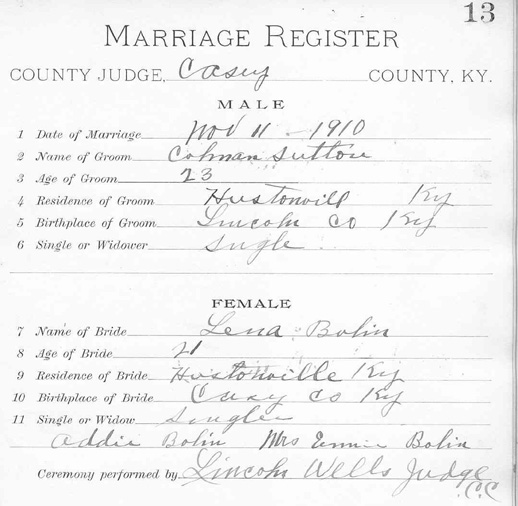 13
MARRIAGE REGISTER
COUNTY JUDGE, Casey COUNTY, KY.
MALE
1 Date of Marriage Nov 11 - 1910
2 Name of Groom Colman Sutton
3 Age of Groom 23
4 Residence of Groom Hustonvill Ky
5 Birthplace of Groom Lincoln Co Ky
6 Single or Widower Single
FEMALE
7 Name of Bride Lena Bolin
8 Age of Bride 21
9 Residence of Bride Hustonville Ky
10 Birthplace of Bride Casey Co Ky
11 Single or Widow Single
Addie Bolin Mrs Bolin
Ceremony performed by Lincoln Wells Judge
C.C